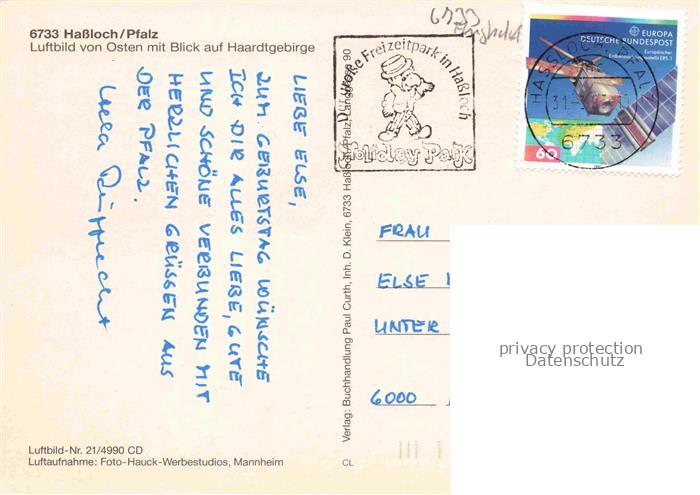 6733 Haßloch/Pfalz
Luftbild von Osten mit Blick auf Haardtgebirge
LIEBE ELSE,
ZUM GEBURTSTAG WÜNSCHE
ICH DIR ALLES LIEBE, GUTE
UND SCHÖNE VERBUNDEN MIT
HERZLICHEN GRÜSSEN AUS
DER PFALZ.
Luftbild-Nr. 21/4990 CD
Luftaufnahme: Foto-Hauck-Werbestudios, Mannheim
CL
Verlag: Buchhandlung Paul Curth, Inh. D. Klein, 6733 Haßloch/Pfalz, Langgasse 90
6733
große Freizeitpark in Haßloch
Holiday Park
EUROPA
DEUTSCHE BUNDESPOST
Europäischer
ERS-1
60
HASSLOCH, PFALZ
31.
6733
FRAU
ELSE
UNTER
6000
privacy protection
Datenschutz